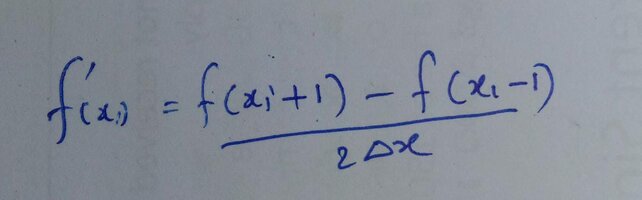 f'(xᵢ) = f(xᵢ+1) - f(xᵢ-1)
2Δx